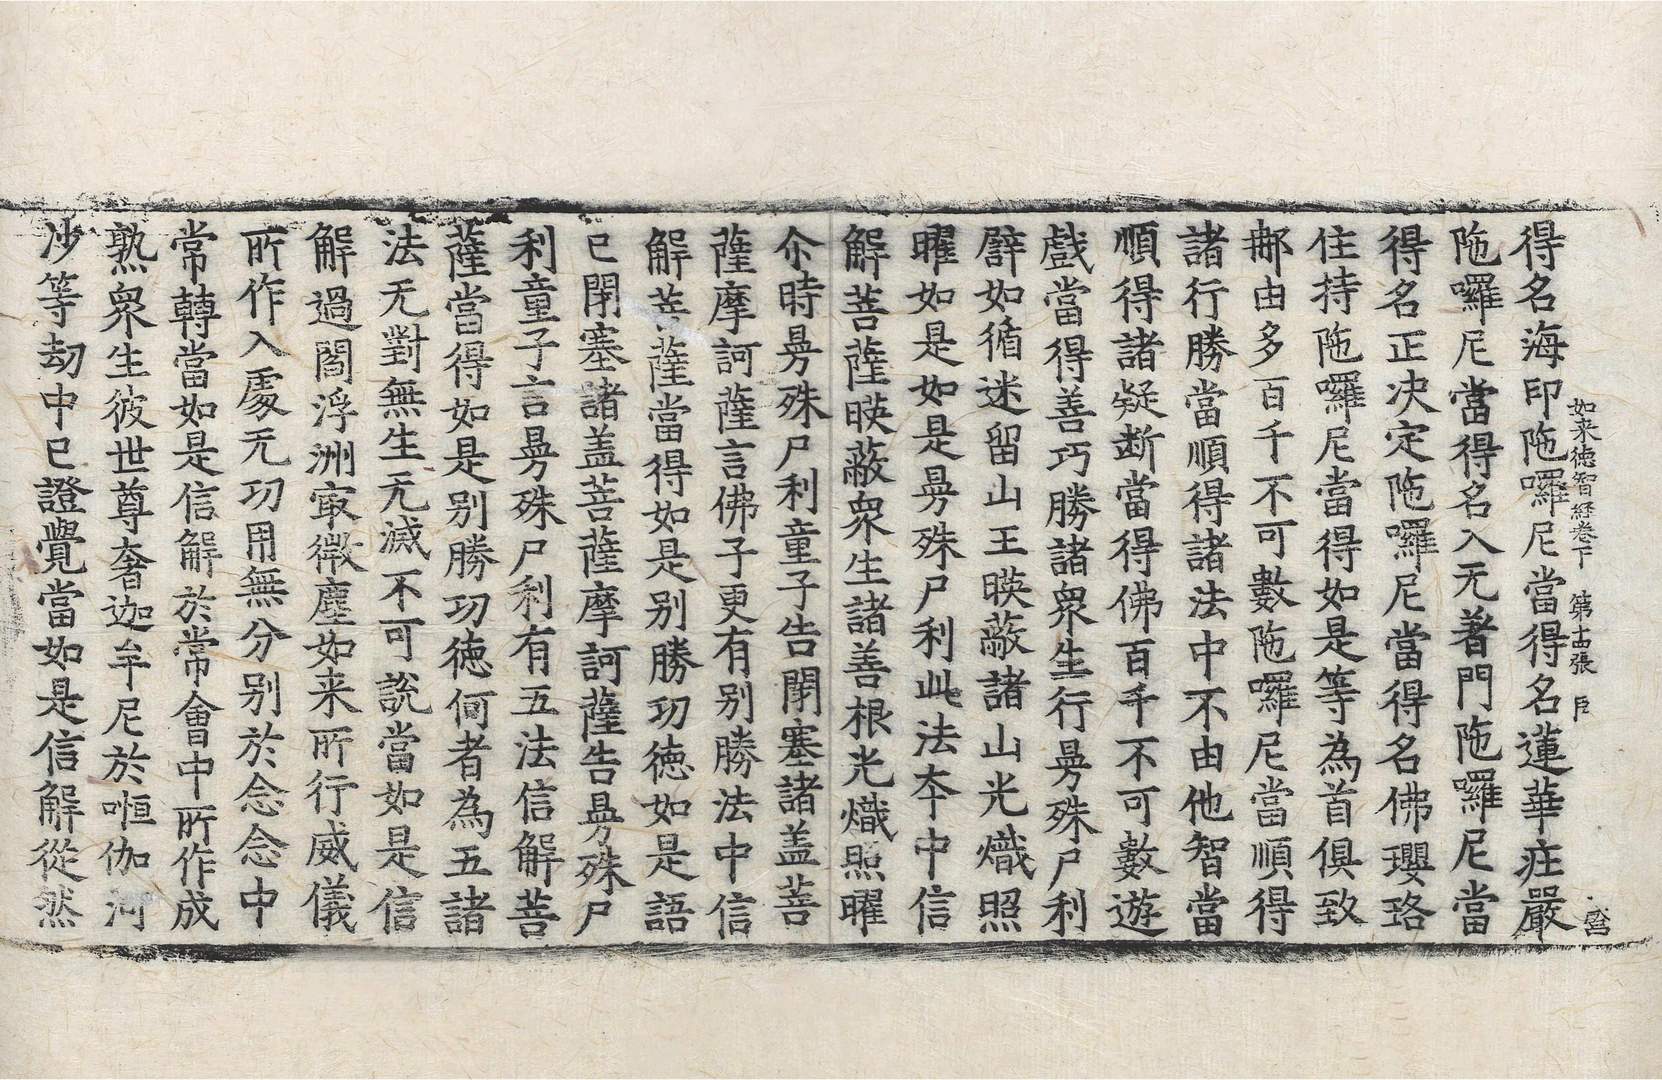 如来徳智経卷下　第十五張　臣
得名海印陁囉尼當得名蓮華疰嚴
陁囉尼當得名入无著門陁囉尼當
得名正决定陁囉尼當得名佛瓔珞
住持陁囉尼當得如是等為首俱致
那由多百千不可數陁囉尼當順得
諸行勝當順得諸法中不由他智當
順得諸疑断當得佛百千不可數遊
戲當得善巧勝諸衆生行曼殊尸利
譬如循迷留山王暎蔽諸山光熾照
曜如是如是曼殊尸利此法夲中信
解菩薩暎蔽衆生諸善根光熾照曜
尒時曼殊尸利童子告閉塞諸盖菩
薩摩訶薩言佛子更有别勝法中信
解菩薩當得如是别勝功徳如是語
已閉塞諸盖菩薩摩訶薩告曼殊尸
利童子言曼殊尸利有五法信解菩
薩當得如是别勝功徳何者為五諸
法无對無生无滅不可説當如是信
解過閻浮洲㝡微塵如来所行威儀
所作入處无功用無分别於念念中
常轉當如是信解於常會中所作成
熟衆生彼世尊奢迦牟尼於㘕伽河
沙等劫中已證覺當如是信解從然